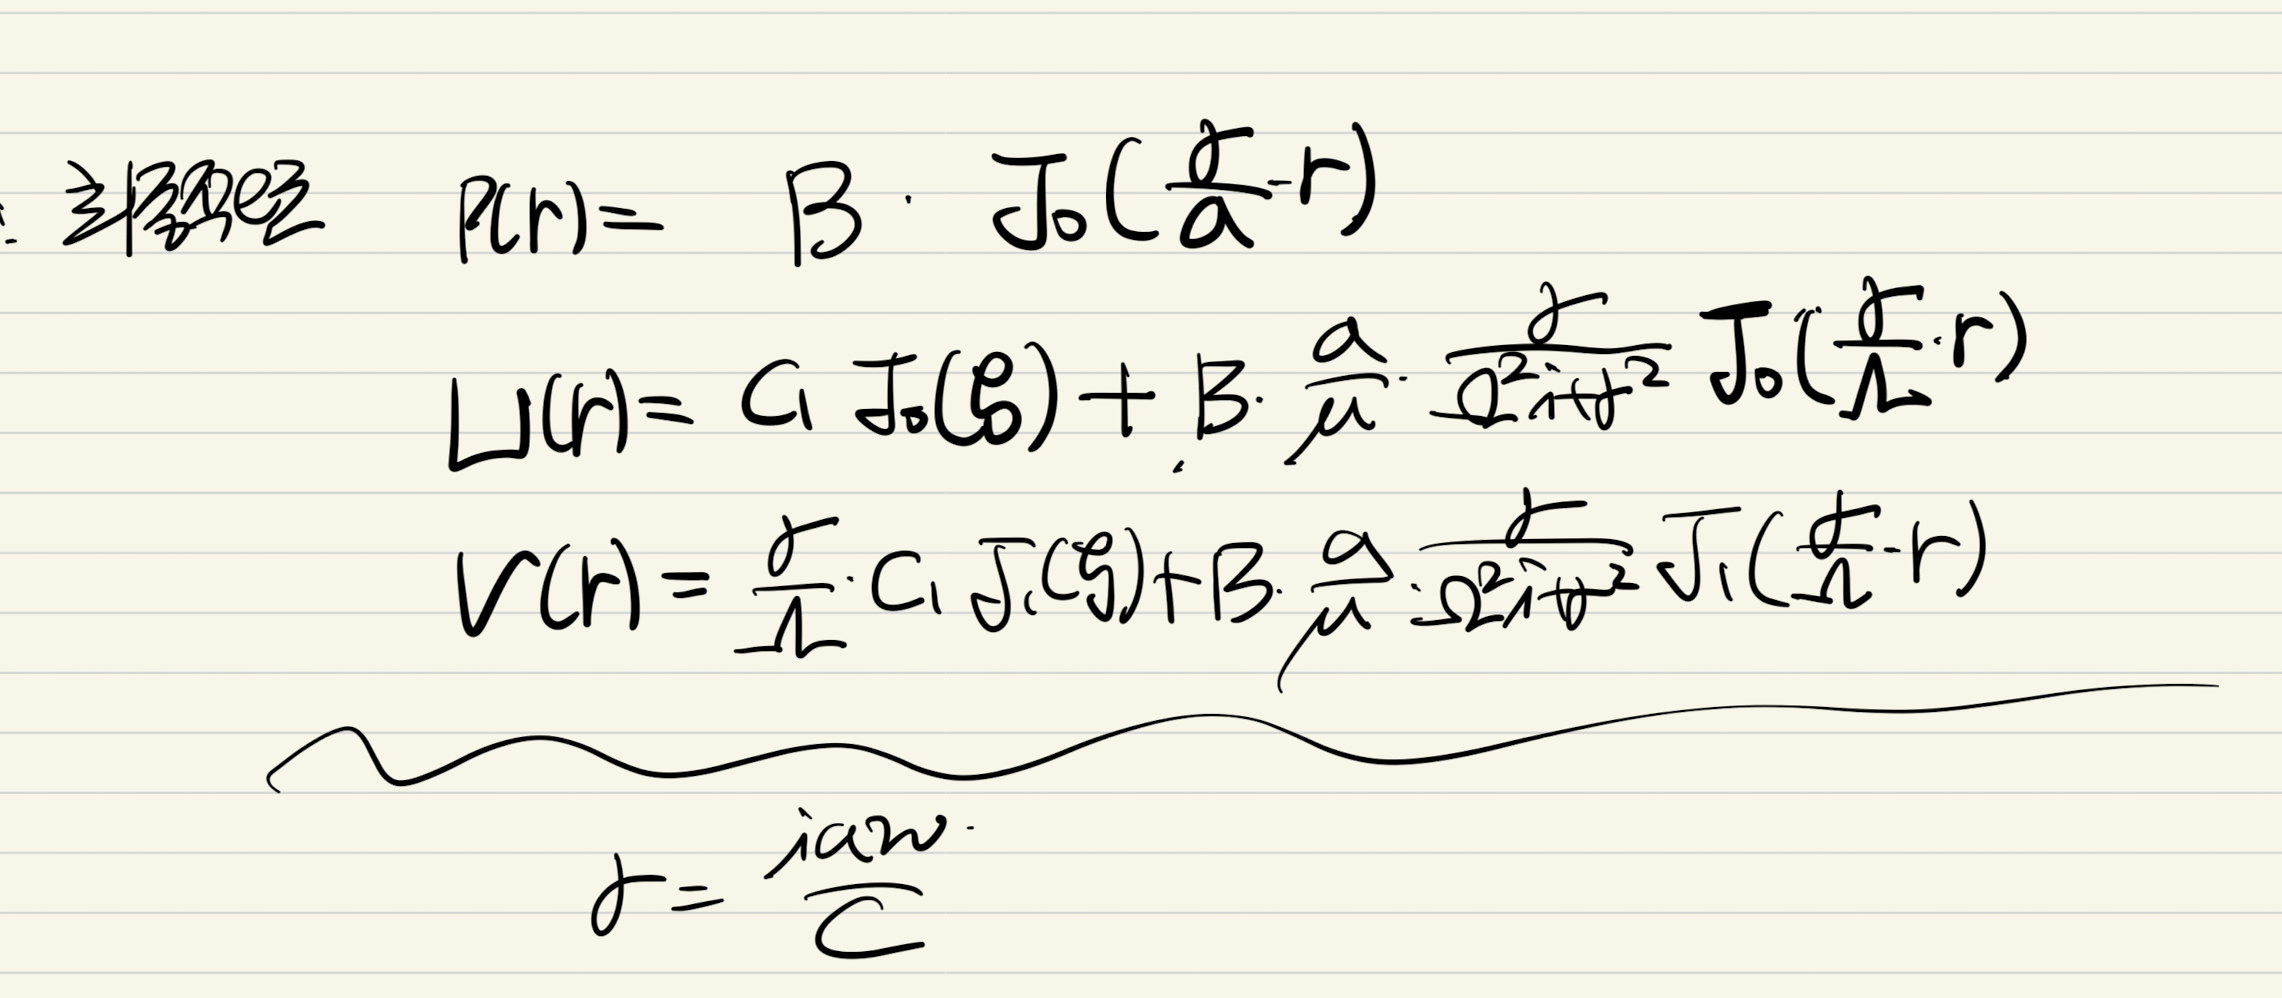 P(r) = B · J₀(γ/a · r)
U(r) = C₁ J₀(ξ) + B · a/μ · γ/(Ω²i+γ²) J₀(γ/Ω · r)
V(r) = γ/Ω · C₁ J₁(ξ) + B · a/μ · γ/(Ω²i+γ²) J₁(γ/Ω · r)
γ = iaw/C